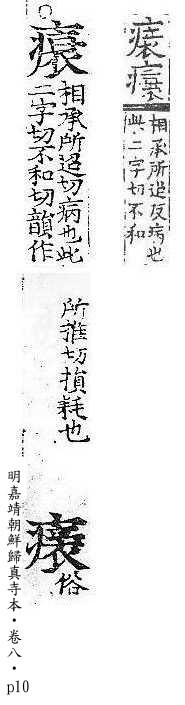 相承所追反病也
此二字切不和
相承所追切病也此
二字切不和切韻作
所推切損耗也
俗
明嘉靖朝鮮歸真寺本・卷八・
p10